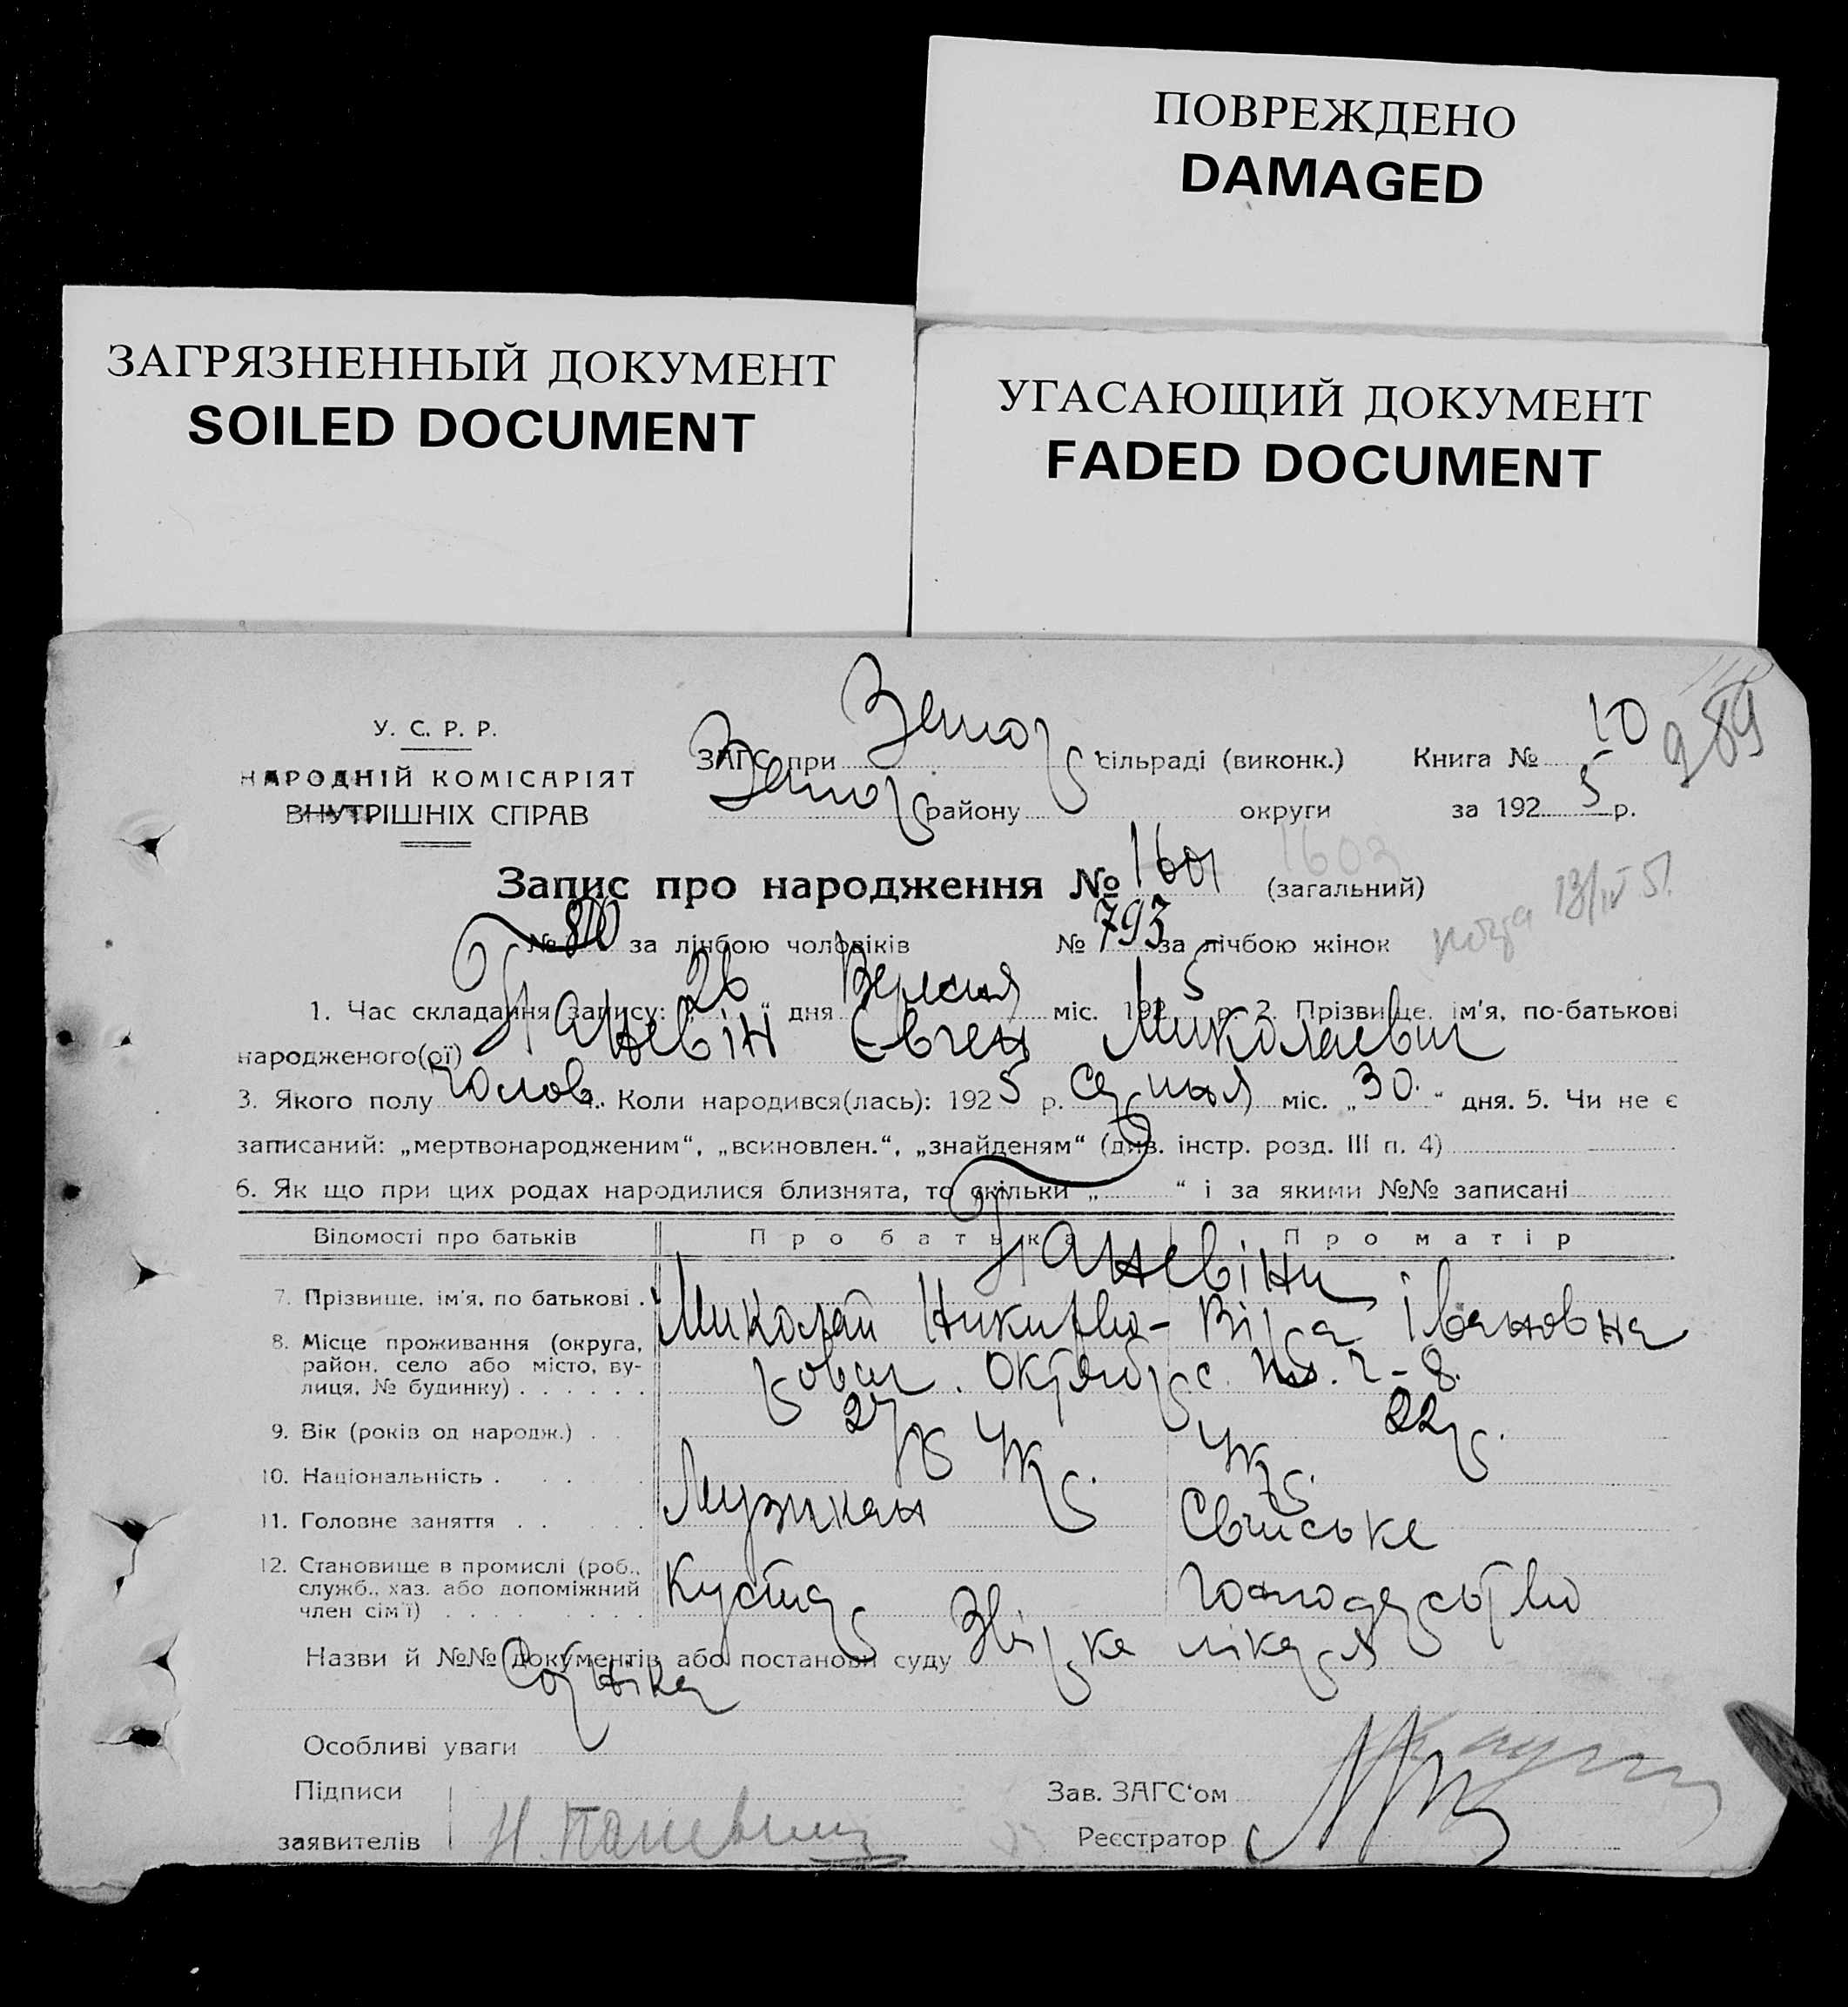 ПОВРЕЖДЕНО
DAMAGED
ЗАГРЯЗНЕННЫЙ ДОКУМЕНТ
SOILED DOCUMENT
УГАСАЮЩИЙ ДОКУМЕНТ
FADED DOCUMENT
289
У. С. Р. Р.
НАРОДНІЙ КОМІСАРІЯТ
ВНУТРІШНІХ СПРАВ
ЗАГС при сільраді (виконк.) Книга № 10
району округи за 1925 р.
Запис про народження № 1601 (загальний)
1603
13/IV 51.
№ 810 за лічбою чоловіків № 793 за лічбою жінок
1. Час складання запису: „26“ дня Вересня міс. 1925 р. 2. Прізвище, ім'я, по-батькові
народженого(ої) Паневін Євген Миколаевич
3. Якого полу чолов. 4. Коли народився(лась): 1925 р. Серпня міс. „30.“ дня. 5. Чи не є
записаний: „мертвонародженим“, „всиновлен.“, „знайденям“ (див. інстр. розд. III п. 4)
6. Як що при цих родах народилися близнята, то скільки „ “ і за якими №№ записані
Відомості про батьків Про батька Про матір
Паневіни
7. Прізвище, ім'я, по батькові . Миколай Никифо- Віра Івановна
8. Місце проживання (округа, район, село або місто, вулиця, № будинку) . . . . . . рович. Октябрс. 2-8.
9. Вік (років од народж.) . . 27 р. 22 р.
10. Національність . . . . Укр. Укр.
11. Головне заняття . . . . Музикан Свійське
12. Становище в промислі (роб., служб., хаз. або допоміжний член сім'ї) . . . . . . . Кустар господарство
Назви й №№ документів або постанови суду Звірка лікаря
Особливі уваги
Підписи заявителів Н. Паневин
Зав. ЗАГС'ом
Реєстратор